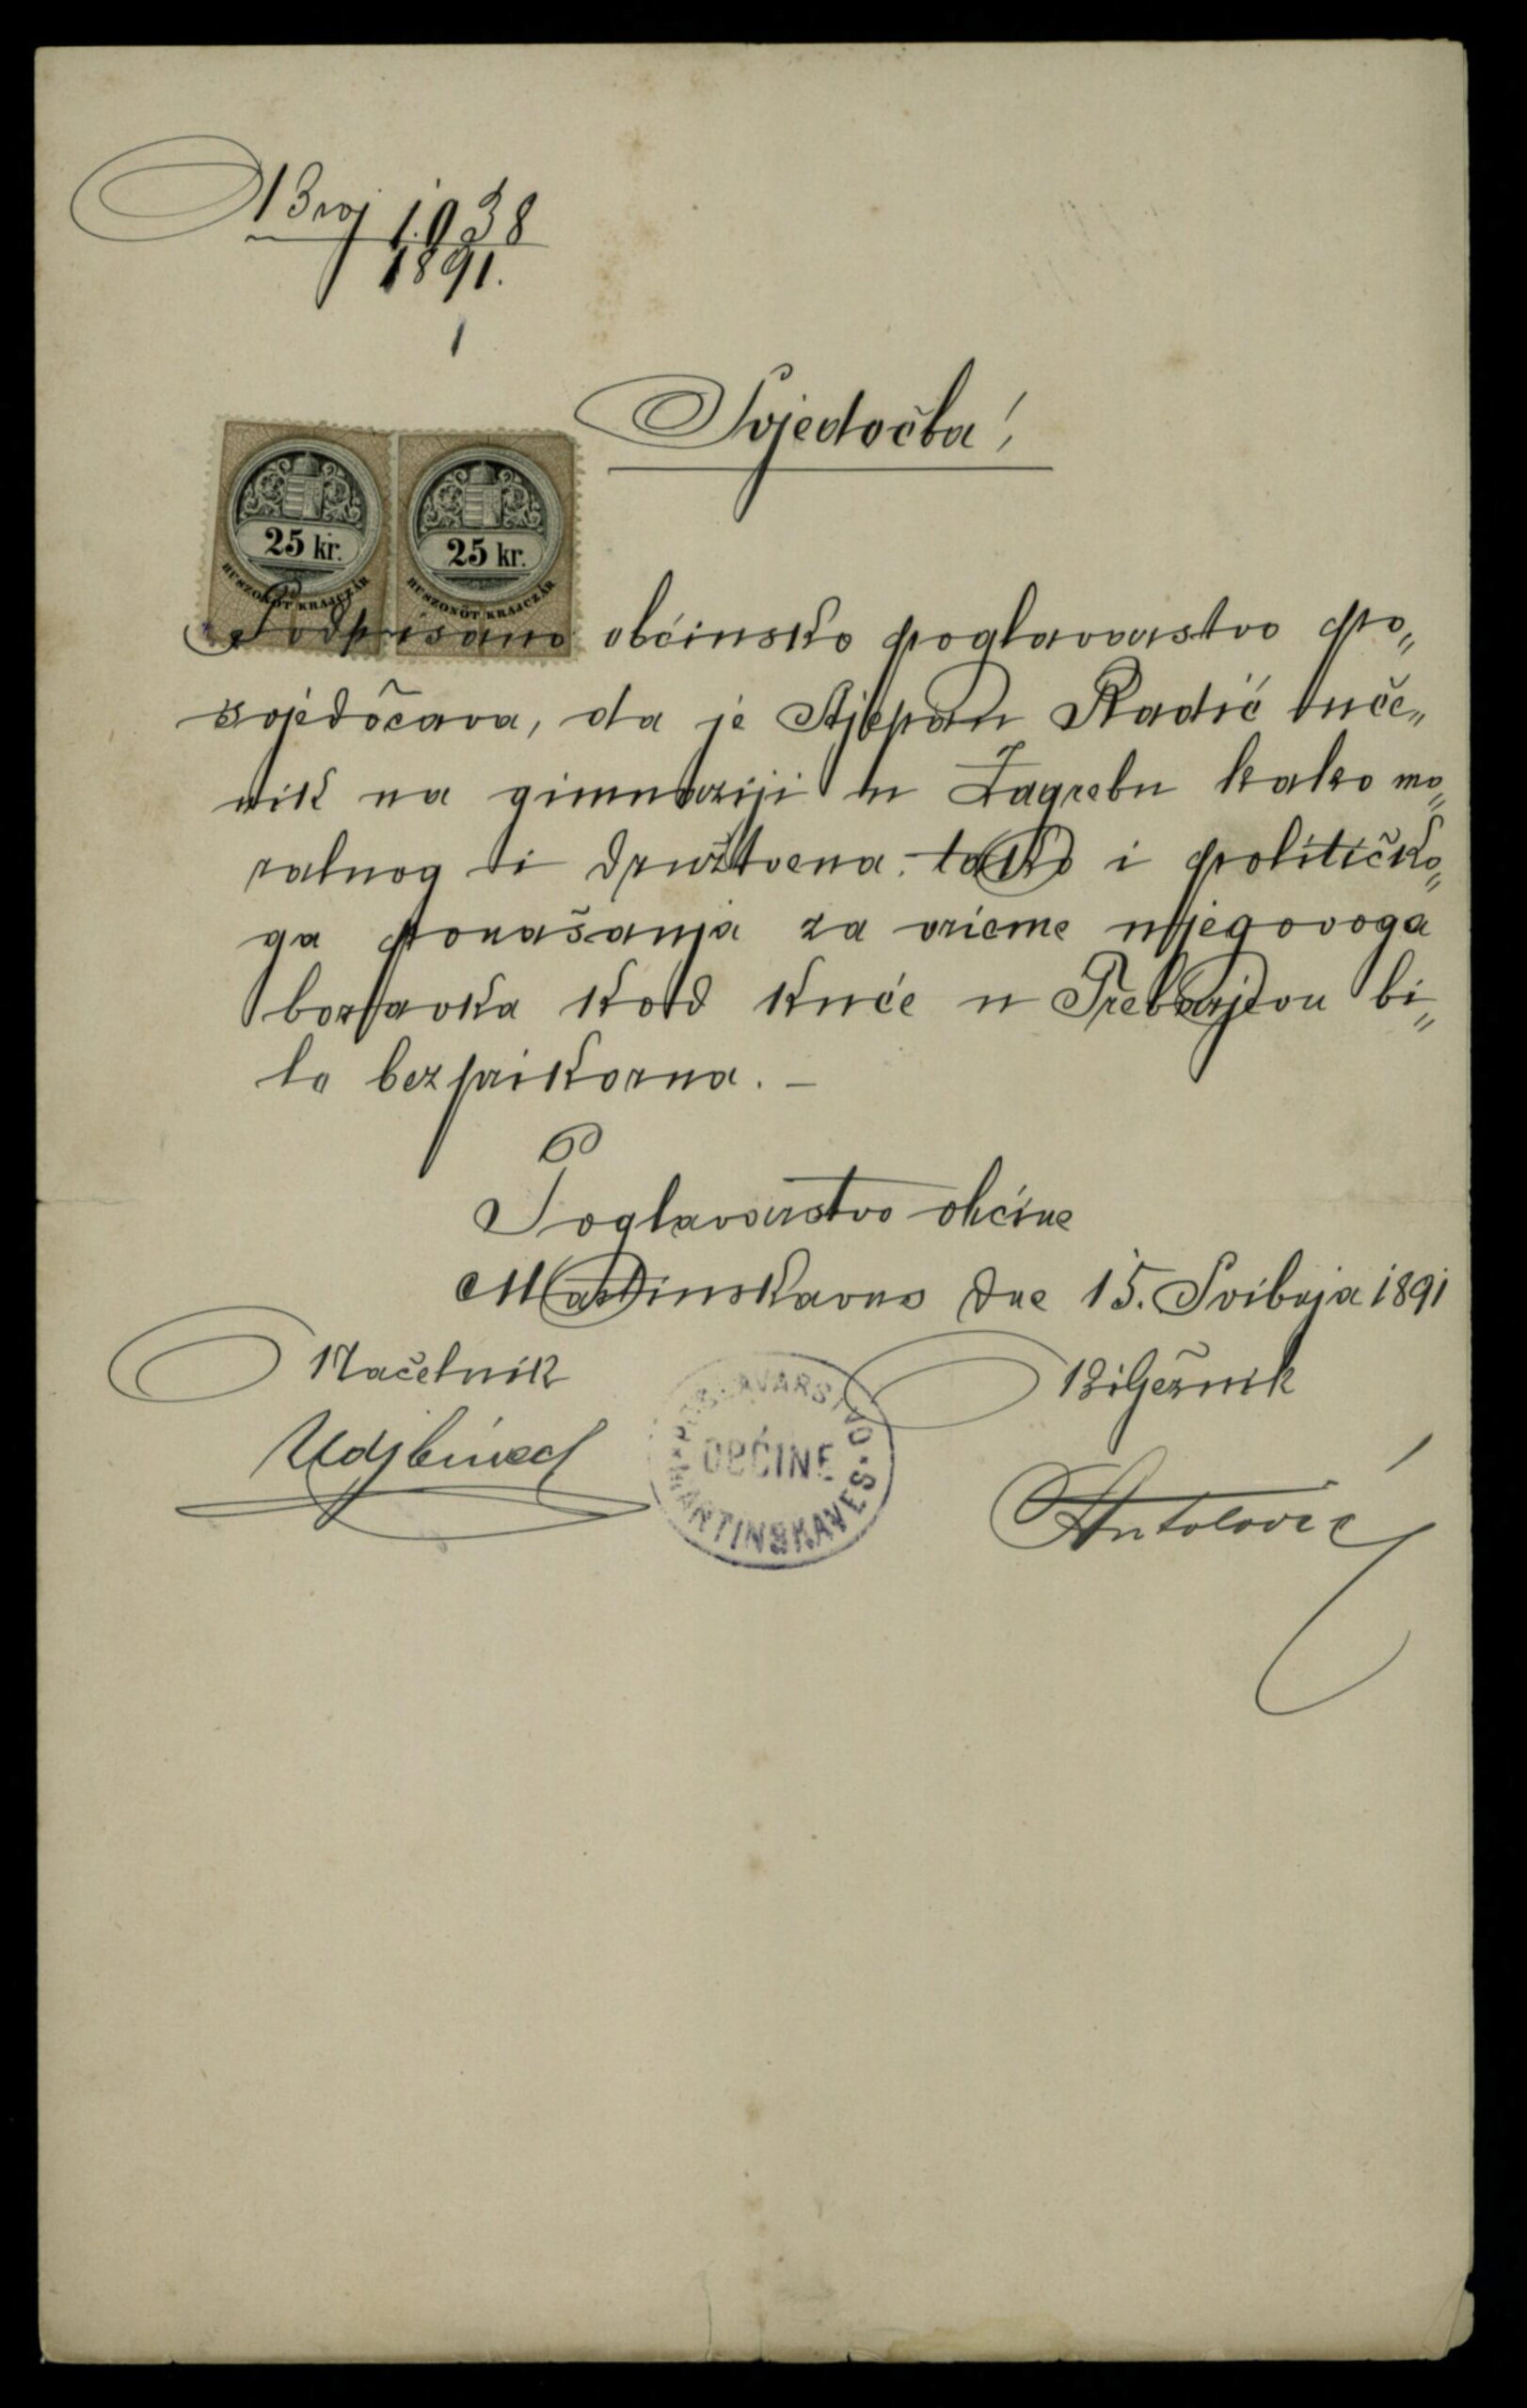 Broj 1038
1891.
Svjedočba!
25 kr.
HUSZONÖT KRAJCZÁR
25 kr.
HUSZONÖT KRAJCZÁR
Podpisano občinsko poglavarstvo po„
svjedočava, da je Stjepan Radić uče„
nik na gimnaziji u Zagrebu kako mo„
ralnog i družtvena tako i političko„
ga ponašanja za vrieme njegovoga
boravka kod kuće u Trebarjevu bi„
lo bezprikorna. –
Poglavarstvo občine
dne 15. Svibnja 1891
Načelnik
Bilježnik
POGLAVARSTVO
OBĆINE
MARTINSKAVES
Antolović